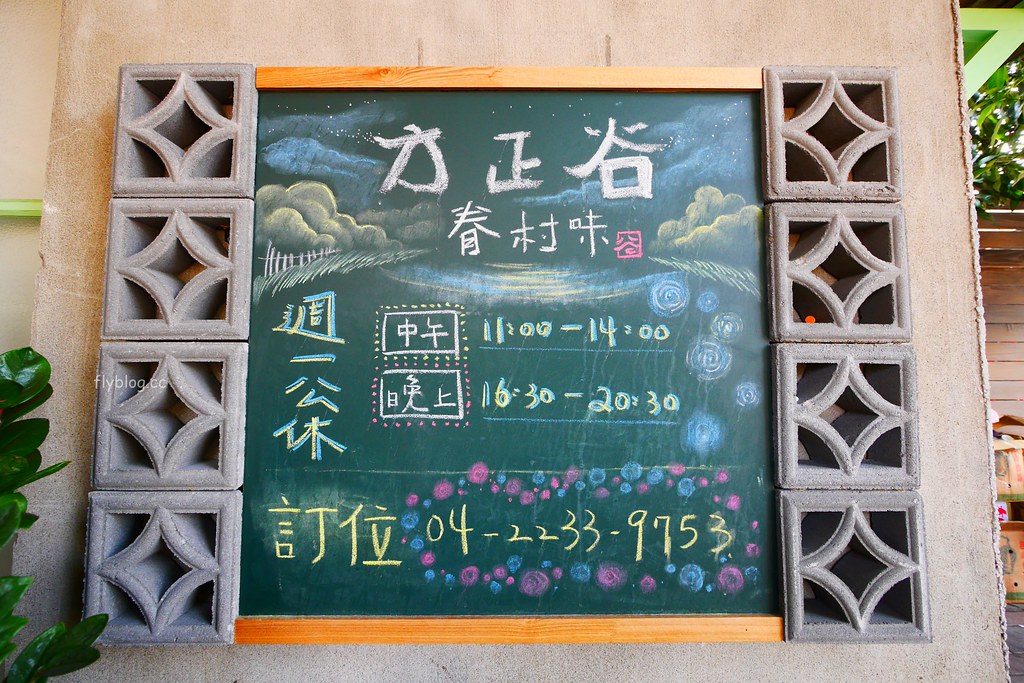 方正谷
眷村味 谷
週一公休
中午 11:00-14:00
晚上 16:30-20:30
訂位 04-2233-9753
flyblog.cc